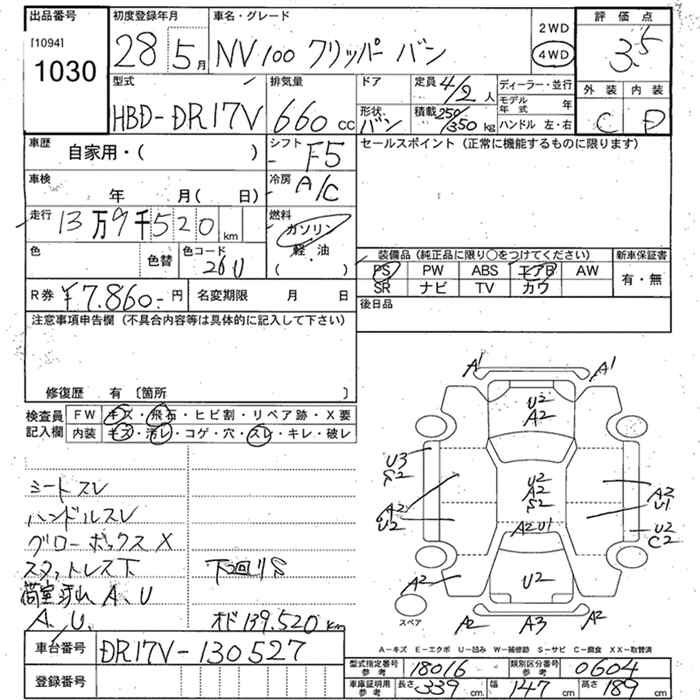 出品番号 初度登録年月 車名・グレード 評価点
[1094]
1030
28 5月 NV100 クリッパー バン 2WD 4WD 3.5
型式 排気量 ドア 定員 4/2人 ディーラー・並行 外装 内装
モデル年式 年
HBD-DR17V 660cc 形状 バン 積載 250/350kg ハンドル 左・右 C D
車歴 シフト セールスポイント (正常に機能するものに限ります)
自家用・( ) F5
車検 冷房
年 月( 日) A/C
走行 燃料
13万9千520km ガソリン
軽・油
( )
色 色替 色コード 26U
装備品 (純正品に限り○をつけてください) 新車保証書
PS PW ABS エアB AW 有・無
SR ナビ TV カワ
R券 ¥7,860-円 名変期限 月 日 後日品
注意事項申告欄 (不具合内容等は具体的に記入して下さい)
修復歴 有 〔箇所 〕
検査員記入欄 FW キズ・飛石・ヒビ割・リペア跡・X要
内装 キズ・汚レ・コゲ・穴・スレ・キレ・破レ
シートスレ
ハンドルスレ
グローボックスX
スタットレス下 下回りS
荷室 A、U
A、U. オド139.520km
A1 A1
U2
A2
U3
S2
U2
A2
S2
A2
U2
A2
U1
A2U1
U2
C2
A2
U2
スペア
A2 A3 A2
A-キズ E-エクボ U-凹み W-補修跡 S-サビ C-腐食 XX-取替済
車台番号 DR17V-130527
型式指定番号 参考 18016 類別区分番号 参考 0604
登録番号 車庫証明用 参考 長さ 339cm 幅 147cm 高さ 189cm